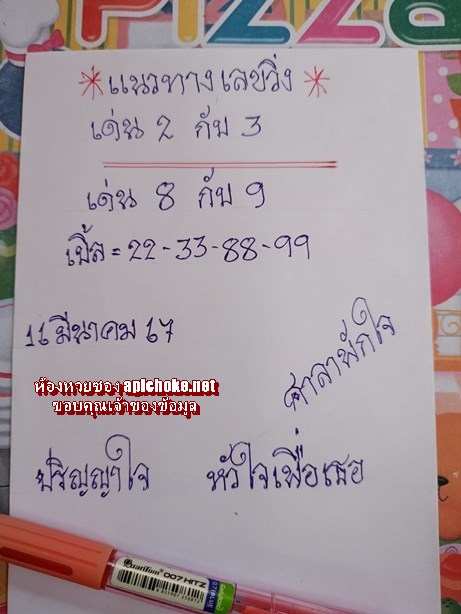 PIZZA
*แนวทางเลขวิ่ง*
เด่น 2 กับ 3
เด่น 8 กับ 9
เบิ้ล = 22-33-88-99
16 มีนาคม 67
ศาลาพักใจ
ห้องหวยซอง apichoke.net
ขอบคุณเจ้าของข้อมูล
ปริญญาใจ
หัวใจเพื่อเธอ
Quantum 007 HITZ